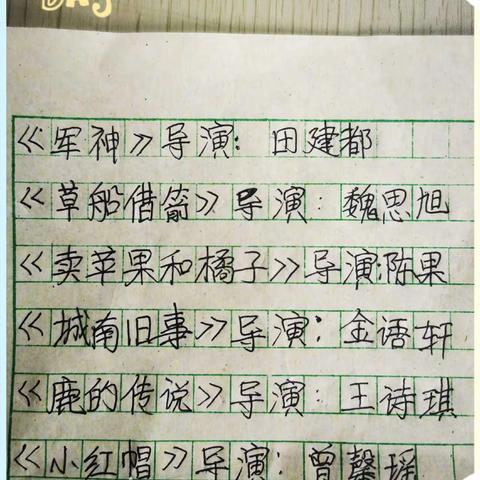 《军神》导演：田建都
《草船借箭》导演：魏思旭
《卖苹果和橘子》导演:陈果
《城南旧事》导演：金语轩
《鹿的传说》导演：王诗琪
《小红帽》导演：曾馨瑶